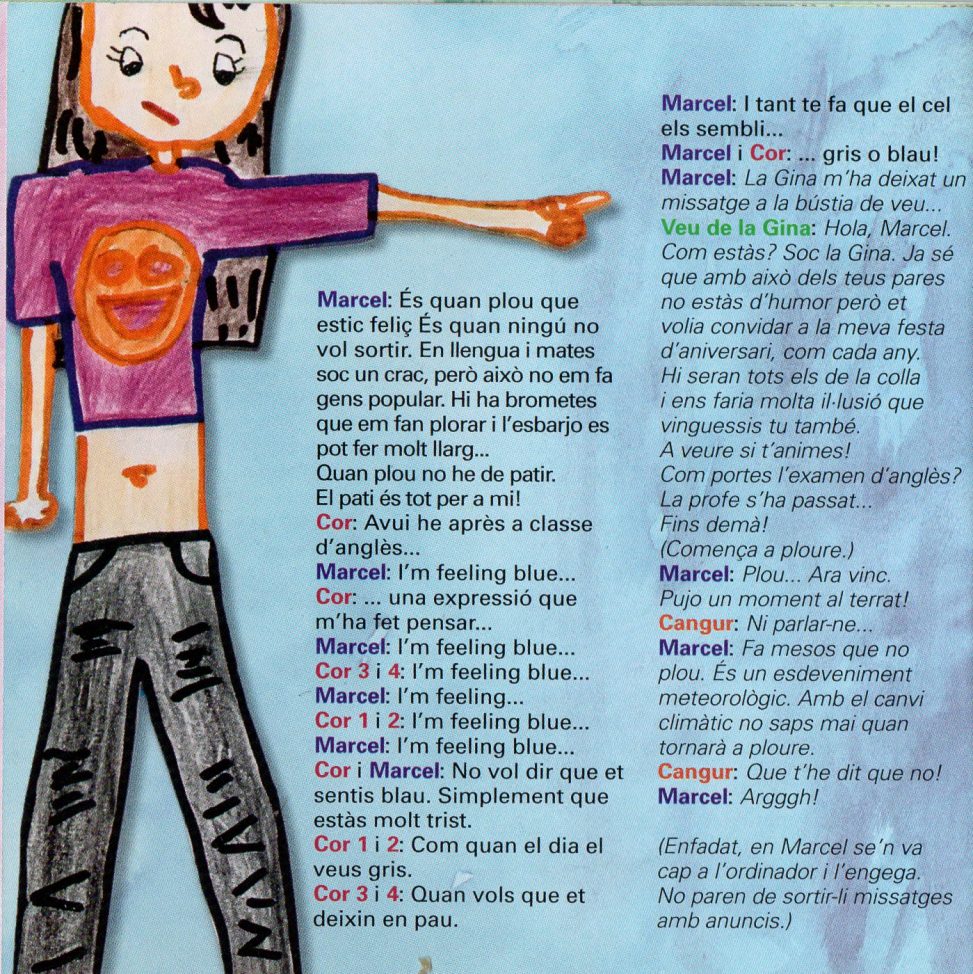 Marcel: És quan plou que
estic feliç És quan ningú no
vol sortir. En llengua i mates
soc un crac, però això no em fa
gens popular. Hi ha brometes
que em fan plorar i l’esbarjo es
pot fer molt llarg...
Quan plou no he de patir.
El pati és tot per a mi!
Cor: Avui he après a classe
d’anglès...
Marcel: I’m feeling blue...
Cor: ... una expressió que
m’ha fet pensar...
Marcel: I’m feeling blue...
Cor 3 i 4: I’m feeling blue...
Marcel: I’m feeling...
Cor 1 i 2: I’m feeling blue...
Marcel: I’m feeling blue...
Cor i Marcel: No vol dir que et
sentis blau. Simplement que
estàs molt trist.
Cor 1 i 2: Com quan el dia el
veus gris.
Cor 3 i 4: Quan vols que et
deixin en pau.
Marcel: I tant te fa que el cel
els sembli...
Marcel i Cor: ... gris o blau!
Marcel: La Gina m’ha deixat un
missatge a la bústia de veu...
Veu de la Gina: Hola, Marcel.
Com estàs? Soc la Gina. Ja sé
que amb això dels teus pares
no estàs d’humor però et
volia convidar a la meva festa
d’aniversari, com cada any.
Hi seran tots els de la colla
i ens faria molta il·lusió que
vinguessis tu també.
A veure si t’animes!
Com portes l’examen d’anglès?
La profe s’ha passat...
Fins demà!
(Comença a ploure.)
Marcel: Plou... Ara vinc.
Pujo un moment al terrat!
Cangur: Ni parlar-ne...
Marcel: Fa mesos que no
plou. És un esdeveniment
meteorològic. Amb el canvi
climàtic no saps mai quan
tornarà a ploure.
Cangur: Que t’he dit que no!
Marcel: Argggh!
(Enfadat, en Marcel se’n va
cap a l’ordinador i l’engega.
No paren de sortir-li missatges
amb anuncis.)